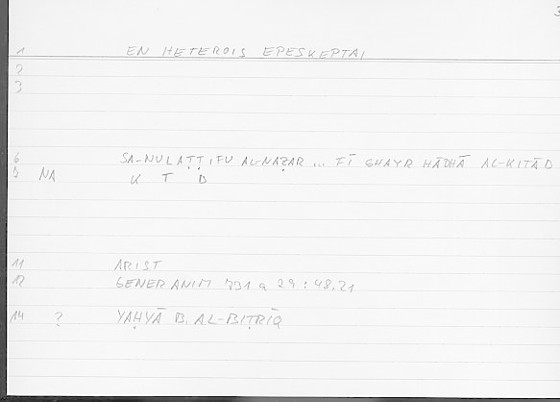 3
1 EN HETEROIS EPESKEPTAI
2
3
6 SA-NULAṬṬIFU AL-NAẒAR ... FĪ GHAYR HĀDHĀ AL-KITĀB
9 NA K T B
11 ARIST
12 GENER ANIM 731 a 29 : 48.21
14 ? YAḤYĀ B. AL-BIṬRĪQ